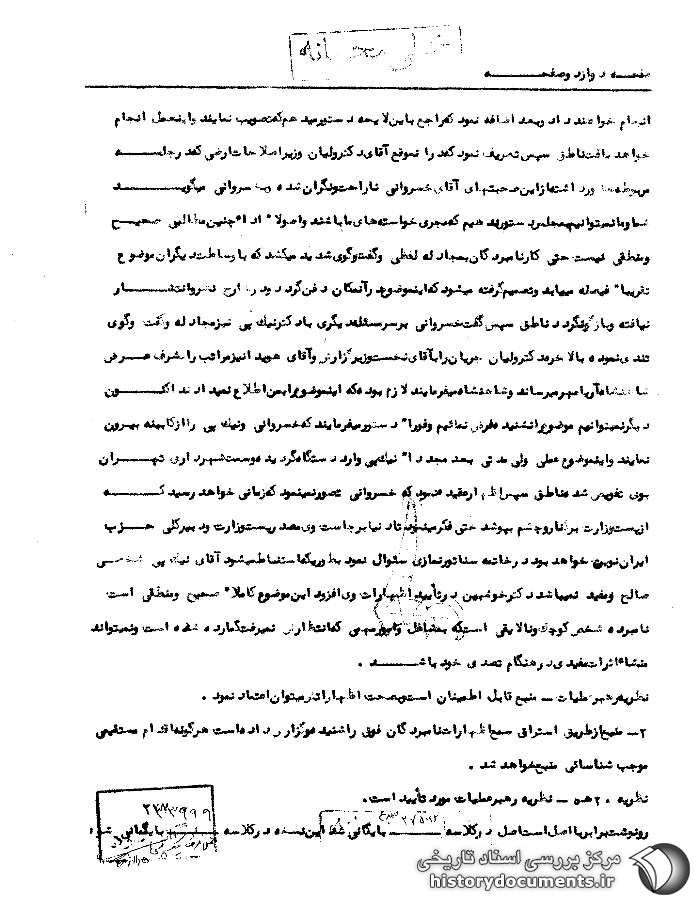 خیلی محرمانه
صفحه دوازده صفحه
انجام خواهند داد وبعد اضافه نمود که راجع باین لایحه دستور میدهم که تصویب نمایند واینعمل انجام
خواهد یافت ناطق سپس تعریف نمود که در آنموقع آقای دکتر ولیان وزیر اصلاحات ارضی که در جلسه
مربوطه حضور داشته از این صحبتهای آقای خسروانی ناراحت ونگران شده وبخسروانی میگوید
شما وما نمیتوانیم بمجلس دستور بدهیم که مجری خواسته های ما باشند واصولا" ادای چنین مطالبی صحیح
ومنطقی نیست حتی کار نامبردگان بمجادله لفظی وگفتگوی شدید میکشد که با وساطت دیگران موضوع
تقریبا" فیصله مییابد وتصمیم گرفته میشود که اینموضوع در آنمکان دفن گردد ودر خارج نشر وانتشار
نیافته وبازگو نگردد ناطق سپس گفت خسروانی بر سر مسئله دیگری با دکتر نیک پی نیز مجادله وگفت وگوی
تندی نموده بالاخره دکتر ولیان جریان را بآقای نخست وزیر گزارش وآقای هویدا نیز مراتب را بشرف عرض
شاهنشاه آریامهر میرساند وشاهنشاه میفرمایند لازم بود که اینموضوع را بمن اطلاع نمیدادند اکنون
دیگر نمیتوانیم موضوع را نشنیده فرض نمائیم وفورا" دستور میفرمایند که خسروانی ونیک پی را از کابینه بیرون
نمایند واینموضوع عملی ولی مدتی بعد مجددا" نیک پی وارد دستگاه گردید وسمت شهرداری تهران
بوی تفویض شد ناطق سپس اظهار عقیده نمود که خسروانی تصور نمینمود که زمانی خواهد رسید که
از پست وزارت برکنار وچشم بپوشد حتی فکر مینمود تا دنیا برجاست وی مصدر پست وزارت ودبیر کلی حزب
ایران نوین خواهد بود در خاتمه سناتور نمازی سئوال نمود بطوریکه استنباط میشود آقای نیک پی شخصی
صالح ومفید نمیباشد دکتر خوشبین در تأیید اظهارات وی افزود این موضوع کاملا" صحیح ومنطقی است
نامبرده شخص کوچک ونالایقی است که بمشاغل وامور مهمی که انتظارش نمیرفت گمارده شده است ونمیتواند
منشاء اثرات مفیدی در هنگام تصدی خود باشد .
نظریه رهبر عملیات ـ منبع قابل اطمینان است وبصحت اظهاراتش میتوان اعتماد نمود .
۲ـ منبع از طریق استراق سمع اظهارات نامبردگان فوق را شنیده وگزارش داده است هرگونه اقدام مستقیمی
موجب شناسائی منبع خواهد شد .
نظریه ۲۰ هـ ۵ ـ نظریه رهبر عملیات مورد تأیید است.
رونوشت برابر با اصل است اصل در کلاسه بایگانی شد این نسخه در کلاسه بایگانی شود
۲۳۳۹۹۹
مرکز بررسی اسناد تاریخی
historydocuments.ir